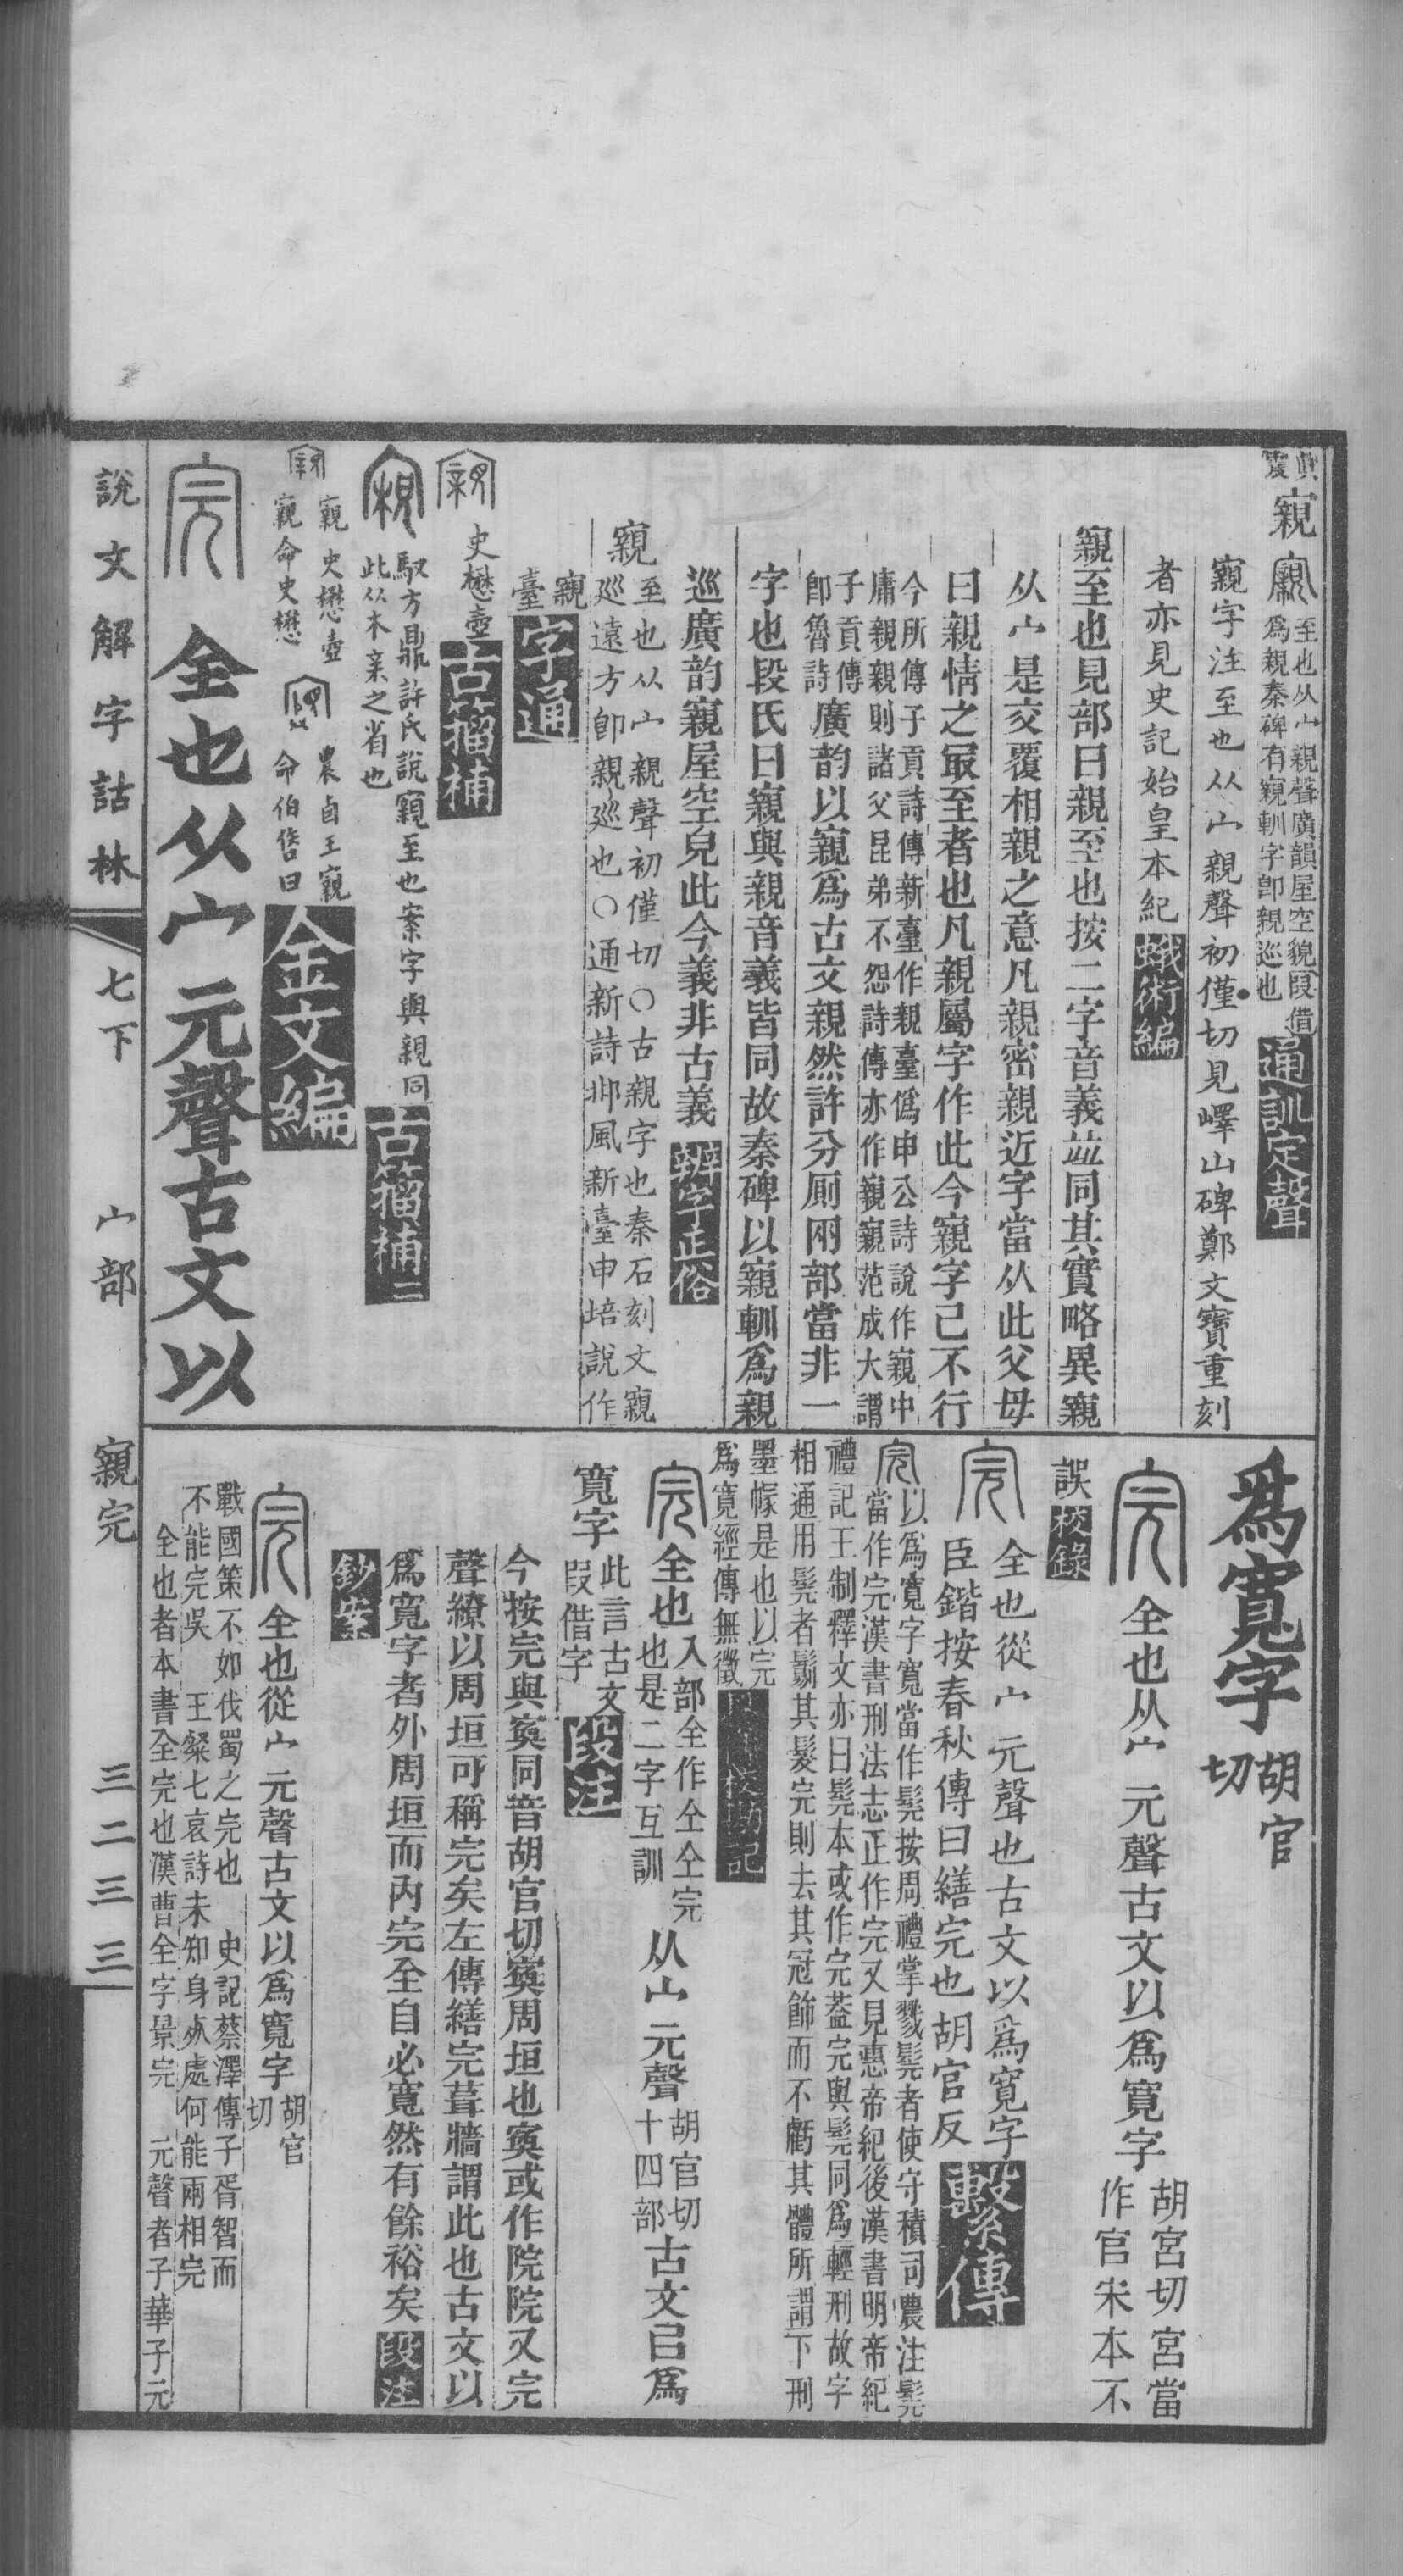 真
震
寴
至也从宀親聲廣韻屋空貌叚借
爲親秦碑有寴軔字卽親巡也
通訓定聲
寴字注至也从宀親聲初僅切見嶧山碑鄭文寶重刻
者亦見史記始皇本紀
蛾術編
寴至也見部曰親至也按二字音義竝同其實略異寴
从宀是交覆相親之意凡親密親近字當从此父母
曰親情之最至者也凡親屬字作此今寴字已不行
今所傳子貢詩傳新臺作親臺僞申公詩說作寴中
庸親親則諸父昆弟不怨詩傳亦作寴寴范成大謂
子貢傳
卽魯詩
廣韵以寴爲古文親然許分厠兩部當非一
字也段氏曰寴與親音義皆同故秦碑以寴軔爲親
巡廣韵寴屋空皃此今義非古義
辨字正俗
寴
至也从宀親聲初僅切○古親字也秦石刻文寴
巡遠方卽親巡也○通新詩邶風新臺申培說作
寴
臺
字通
史懋壺
古籀補
馭方鼎許氏說寴至也案字與親同
此从木亲之省也
古籀補二
寴 史懋壺
寴命史懋
農卣王寴
命伯㑥曰
金文編
完
全也从宀元聲古文以
爲寬字
胡官
切
完
全也从宀元聲古文以爲寬字
胡宮切宮當
作官宋本不
誤
校錄
完
全也從宀元聲也古文以爲寬字
臣鍇按春秋傳曰繕完也胡官反
繫傳
完
以爲寬字寬當作髡按周禮掌戮髡者使守積司農注髡
當作完漢書刑法志正作完又見惠帝紀後漢書明帝紀
禮記王制釋文亦曰髡本或作完蓋完與髡同爲輕刑故字
相通用髡者鬄其髮完則去其冠飾而不虧其體所謂下刑
墨幪是也以完
爲寬經傳無徵
校勘記
完
全也
入部仝作仝仝完
也是二字互訓
从宀元聲
胡官切
十四部
古文㠯爲
寬字
此言古文
叚借字
段注
今按完與寏同音胡官切寏周垣也寏或作院院又完
聲繚以周垣可稱完矣左傳繕完葺牆謂此也古文以
爲寬字者外周垣而內完全自必寬然有餘裕矣
段注
鈔案
完
全也從宀元聲古文以爲寬字
胡官
切
戰國策不如伐蜀之完也 史記蔡澤傳子胥智而
不能完吳 王粲七哀詩未知身死處何能兩相完
全也者本書全完也漢曹全字景完 元聲者子華子元
說文解字詁林
七下
宀部
寴完
三二三三